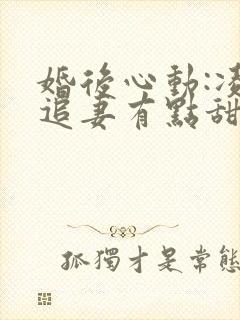 婚後心動:凌
追妻有點甜
孤獨才是常態